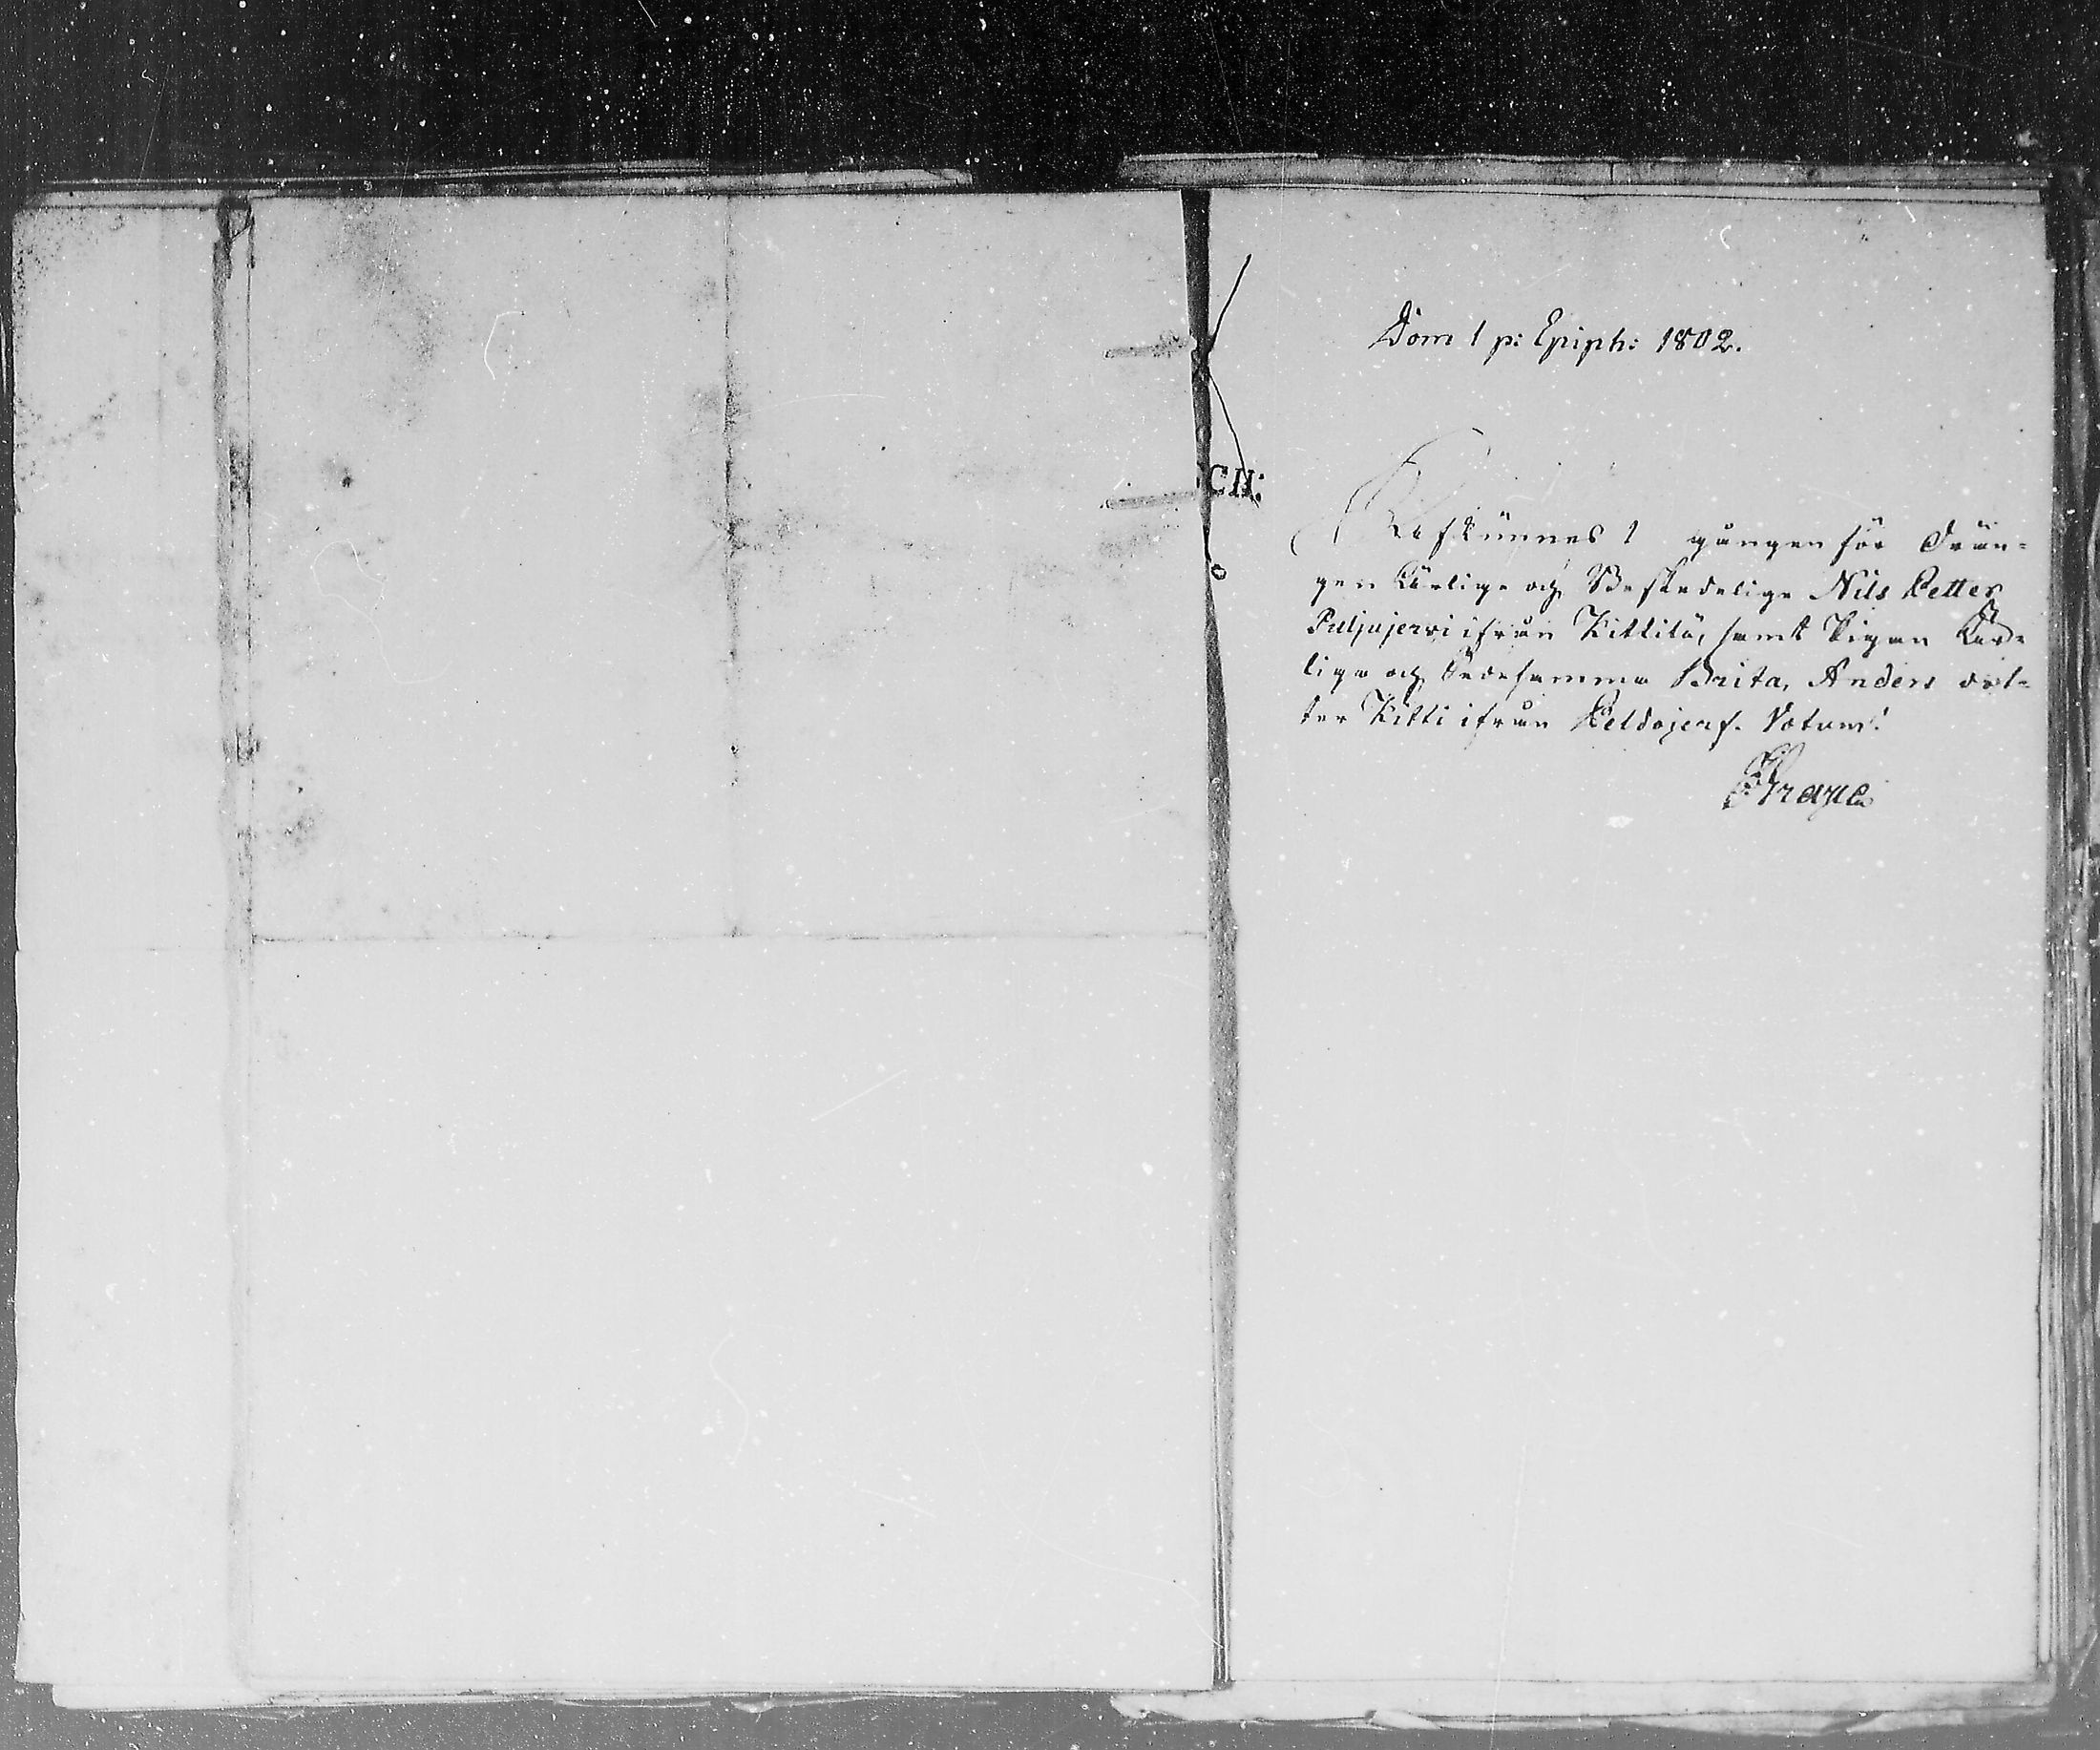 Dom 1 p: Epiph: 1802.
CH:
Afkünnes 1 gången för Drän-
gen Ärlige och Beskedelige Nils Petter
Puljujervi ifrån Kittilä, samt Pigan Är-
liga och Gudesamma Brita, Anders dot-
ter Kitti ifrån Peldojerf. Votum!